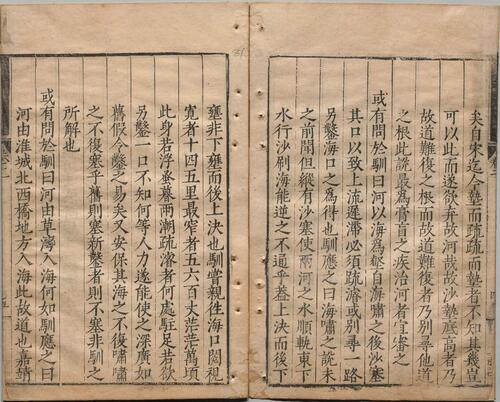 矣自宋迄今塾而疏疏而塾者不知其幾豈
可以此而遂欲弃故河哉故沙墊底高者乃
故道難復之根而故道難復者乃别尋他道
之根此説最為膏肓之疾治河者宜審之
或有問於馴曰河以海為壑自海嘯之後沙塞
其口以致上流遲滯必須疏濬或别尋一路
另鑿海口之為得也馴應之曰海嘯之説未
之前聞但縱有沙塞使兩河之水順軌東下
水行沙刷海能逆之不通乎蓋上決而後下
壅非下壅而後上決也馴嘗親往海口閲視
寛者十四五里最窄者五六百丈茫茫萬頃
此身若浮蜑暮兩潮疏濬者何處駐足若欲
另鑿一口不知何等人力遂能使之深廣如
舊假令鑿之易矣又安保其海之不復嘯嘯
之不復塞乎舊則塞新鑿者則不塞非馴之
所解也
或有問於馴曰河由草灣入海何如馴應之曰
河由淮城北西橋地方入海此故道也嘉靖